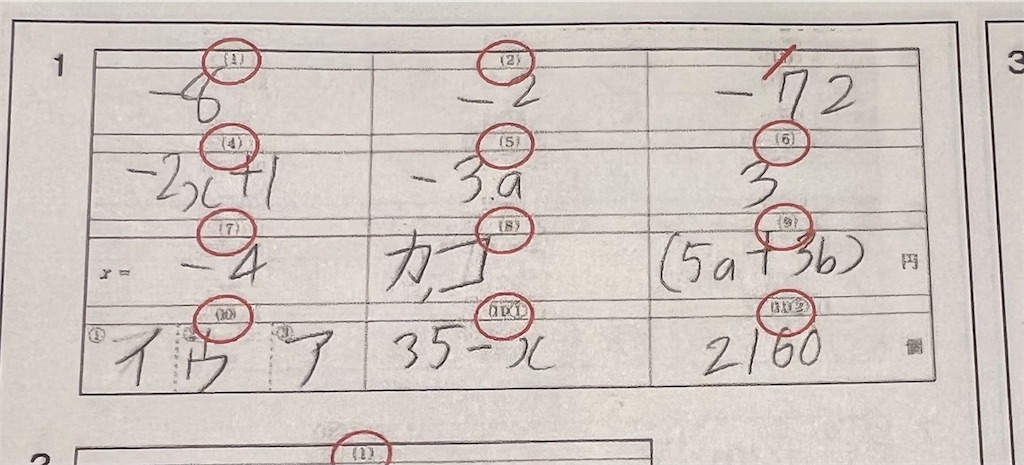 1
3
(1) (2)
-8 -2 -72
(4) (5) (6)
-2x+1 -3a 3
(7) (8) (9)
x = -4 カ,コ (5a+3b) 円
(10) (11)① (11)②
① イ ② ウ ③ ア 35-x 2160 個
2
(1)